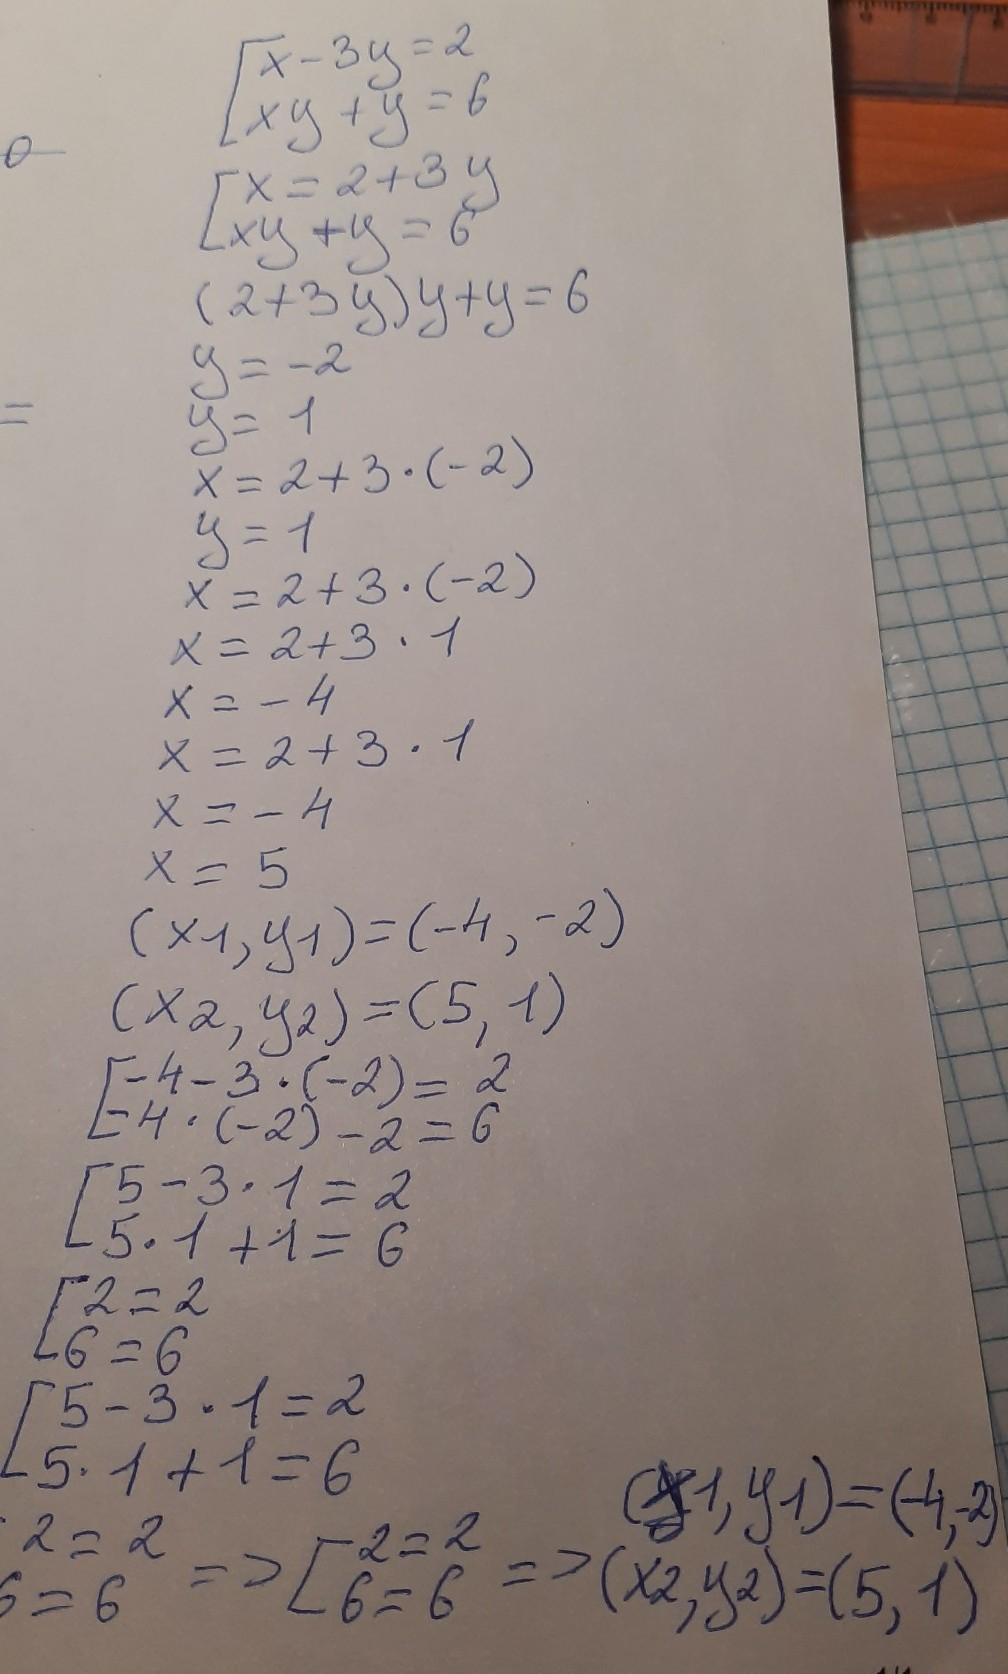 [x-3y=2
xy+y=6
[x=2+3y
xy+y=6
(2+3y)y+y=6
y=-2
=
y=1
x=2+3·(-2)
y=1
x=2+3·(-2)
x=2+3·1
x=-4
x=2+3·1
x=-4
x=5
(x1,y1)=(-4,-2)
(x2,y2)=(5,1)
[-4-3·(-2)=2
-4·(-2)-2=6
[5-3·1=2
5·1+1=6
[2=2
6=6
[5-3·1=2
5·1+1=6
2=2 => [2=2 => (x1,y1)=(-4,-2)
6=6 6=6 (x2,y2)=(5,1)